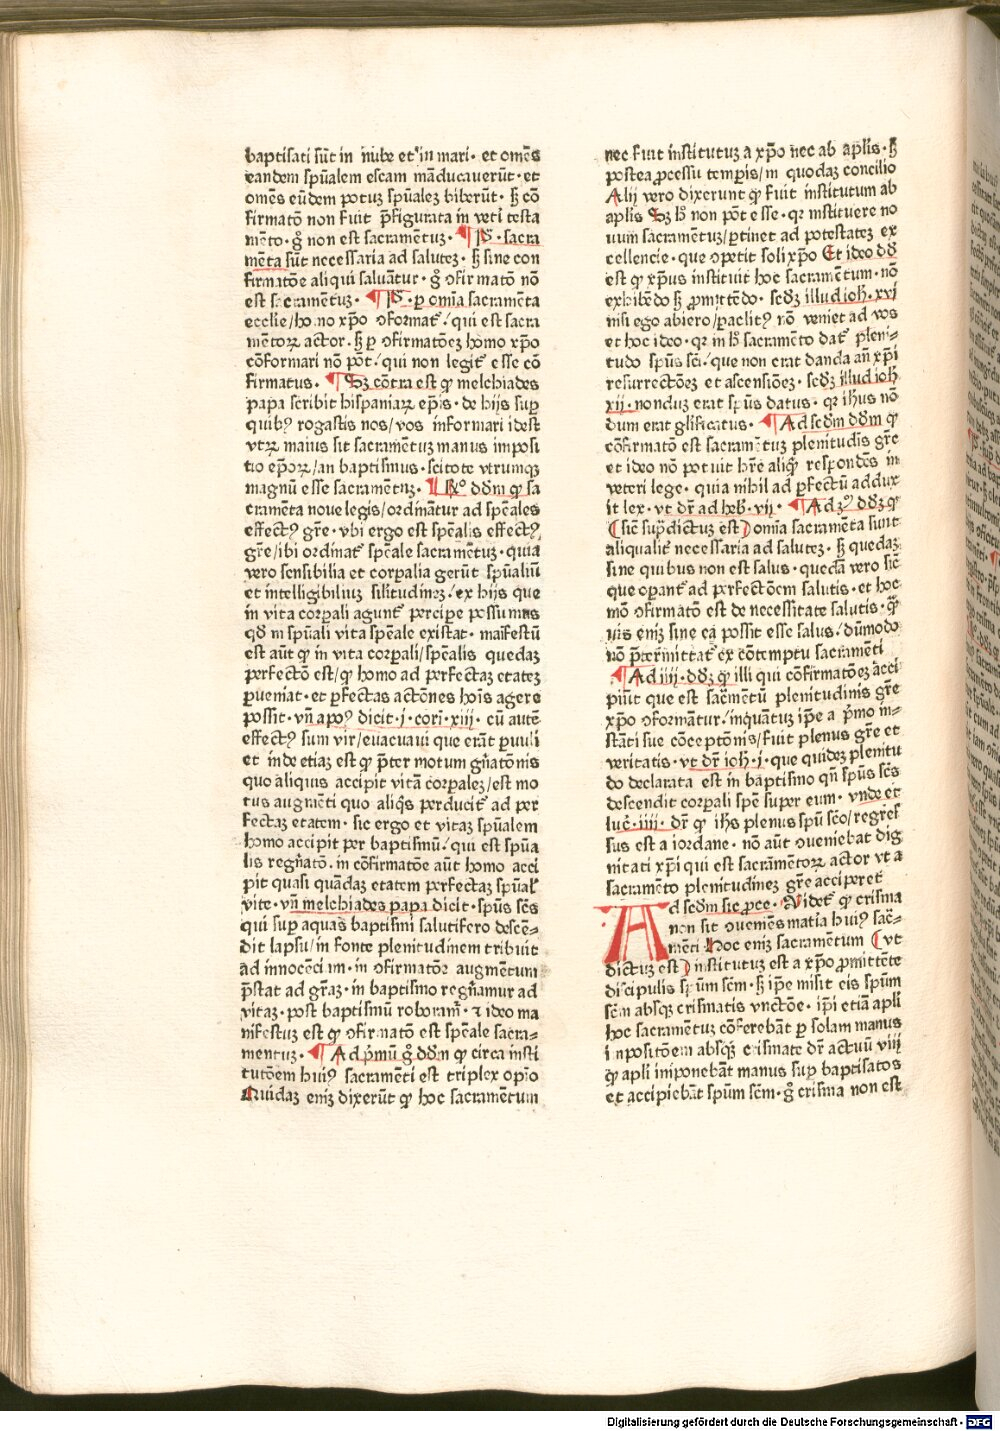 baptisati sūt in nube et in mari · et om̄es
eandem spūalem escam māducauerūt · et
om̄es eūdem potuȝ spūaleȝ biberūt · ẜȝ cō
firmatō non fuit p̄figurata in veti testa
mēto · gͦ non est sacramētuȝ · ¶ Pͭ · sacra
mēta sūt necessaria ad saluteȝ · ẜȝ sine con
firmatōe aliqui saluātur · gͦ ꝯfirmatō nō
est sacramētuȝ · ¶ Pͭ · ꝑ om̄ia sacramēta
ecclie / homo xp̄o ꝯformat᷑ / qui est sacra
mētoꝝ actor · ẜȝ ꝑ ꝯfirmatōeȝ homo xp̄o
cōformari nō pōt / qui non legit᷑ esse cō
firmatus · ¶ Sȝ cōtra est ꝙ melchiades
papa scribit hispaniaꝝ ep̄is · de hijs suꝑ
quibꝰ rogastis nos / vos informari idest
vtꝝ maius sit sacramētuȝ manus imposi
tio ep̄oꝝ / an baptismus · scitote vtrumqȝ
magnū esse sacramētuȝ · ¶ Rͦ dd̄m ꝙ sa
cramēta noue legis / ordināntur ad spēales
effectꝰ gr̄e · vbi ergo est spēalis effectꝰ
gr̄e / ibi ordinat᷑ spēale sacramētuȝ · quia
vero sensibilia et corꝑalia gerūt spūaliū
et intelligibiliuȝ silitudineȝ / ex hijs que
in vita corꝑali agunt᷑ percipe possumus
qd̄ in spūali vita spēale existat · maifestū
est aūt ꝙ in vita corꝑali / spēalis quedaȝ
perfectō est / ꝙ homo ad perfectaȝ etateȝ
ꝑueniat · et ꝑfectas actōnes hoīs agere
possit · vn̄ apoꝰ dicit · j · cori · xiij · cū autē
effectꝰ sum vir / euacuaui que erāt ꝑuuli
et inde etiaȝ est ꝙ p̄ter motum gn̄atōnis
quo aliquis accipit vitā corꝑaleȝ / est mo
tus augmēti quo aliq̄s perducit᷑ ad per
fectaȝ etatem · sic ergo et vitaȝ spūalem
homo accipit per baptismū / qui est spūa
lis regn̄atō · in cōfirmatōe aūt homo acci
pit quasi quādaȝ etatem perfectaȝ spūal᷑
vite · vn̄ melchiades papa dicit · spūs scs̄
qui suꝑ aquas baptismi salutifero descē-
dit lapsu / in fonte plenitudinem tribuit
ad innocēciam · in ꝯfirmatōe augmētum
p̄stat ad gr̄aȝ · in baptismo regn̄amur ad
vitaȝ · post baptismū roboram᷑ · ⁊ ideo ma
nifestuȝ est ꝙ ꝯfirmatō est spēale sacra-
mentuȝ · ¶ Ad p̄mū gͦ dd̄m ꝙ circa insti
tutōem huiꝰ sacramēti est triplex opīo
Quidaȝ eniȝ dixerūt ꝙ hoc sacramētum
nec fuit institutuȝ a xp̄o nec ab aplis · ẜȝ
postea ꝓcessu temꝑis / in quodaȝ concilio
Alij vero dixerunt ꝙ fuit institutum ab
aplis Sȝ hͦ non pōt esse · qr instituere no
uum sacramētuȝ / ꝑtinet ad potestateȝ ex
cellencie · que ꝯpetit soli xp̄o Et ideo dd̄
est ꝙ xp̄us instituit hoc sacramētum · nō
exhibēdo ẜȝ ꝓmittēdo · scd̄ȝ illud ioh̄ · xvi
nisi ego abiero / ꝑaclitꝰ nō veniet ad vos
et hoc ideo · qr in hͦ sacramēto dat᷑ pleni-
tudo spūs sci · que non erat danda an̄ xp̄i
resurrectōeȝ et ascensiōeȝ · scd̄ȝ illud ioh̄
xij · nonduȝ erat spūs datus · qr ihūs nō
dum erat glificatus · ¶ Ad scdm dd̄m ꝙ
cōfirmatō est sacramētuȝ plenitudis gr̄e
et ideo nō potuit hr̄e aliqȝ respondēs in
veteri lege · quia nihil ad ꝑfectū addux
it lex · vt dr̄ ad heb̄ · vij · ¶ Ad ȝͫ dd̄ȝ ꝙ
(sic̄ sup̄dictuȝ est) om̄ia sacramēta sunt
aliqualit᷑ necessaria ad saluteȝ · ẜȝ quedaȝ
sine quibus non est salus · quedā vero sic̄
que oꝑant᷑ ad perfectōem salutis · et hoc
mō ꝯfirmatō est de necessitate salutis · qȝ
uis eniȝ sine ea possit esse salus / dūmodo
nō p̄termittat᷑ ex cōtemptu sacramēti
¶ Ad iiij · dd̄ȝ ꝙ illi qui cōfirmatōeȝ acci
piūt que est sacr̄mētū plenitudinis gr̄e
xp̄o ꝯformātur / inquātuȝ ip̄e a p̄mo in-
stāti sue cōceptōnis / fuit plenus gr̄e et
veritatis · vt dr̄ ioh̄ · j · que quideȝ plenitu
do declarata est in baptismo qn̄ spūs scs̄
descendit corꝑali spē super eum · vnde et
luc̄ · iiij · dr̄ ꝙ ihs̄ plenus spū sc̄o / regres
sus est a iordane · nō aūt ꝯueniebat dig
nitati xp̄i qui est sacrāmētoꝝ actor vt a
sacramēto plenitudineȝ gr̄e acciperet
Ad scdm sic ꝓce · Videt᷑ ꝙ crisma
non sit ꝯueniēs matia huiꝰ sac̄-
mēti Hoc eniȝ sacramētum (vt
dictuȝ est) institutuȝ est a xp̄o ꝓmittēte
discipulis spūm scm̄ · ẜȝ ip̄e misit eis spūm
scm̄ absqȝ crismatis vnctōe · ip̄i etiā apli
hoc sacramētuȝ cōferebāt ꝑ solam manus
inpositōem absqȝ crismate dr̄ actuū viij
ꝙ apli inponebāt manus suꝑ baptisatos
et accipiebāt spūm scm̄ · gͦ crisma non est
Digitalisierung gefördert durch die Deutsche Forschungsgemeinschaft - DFG